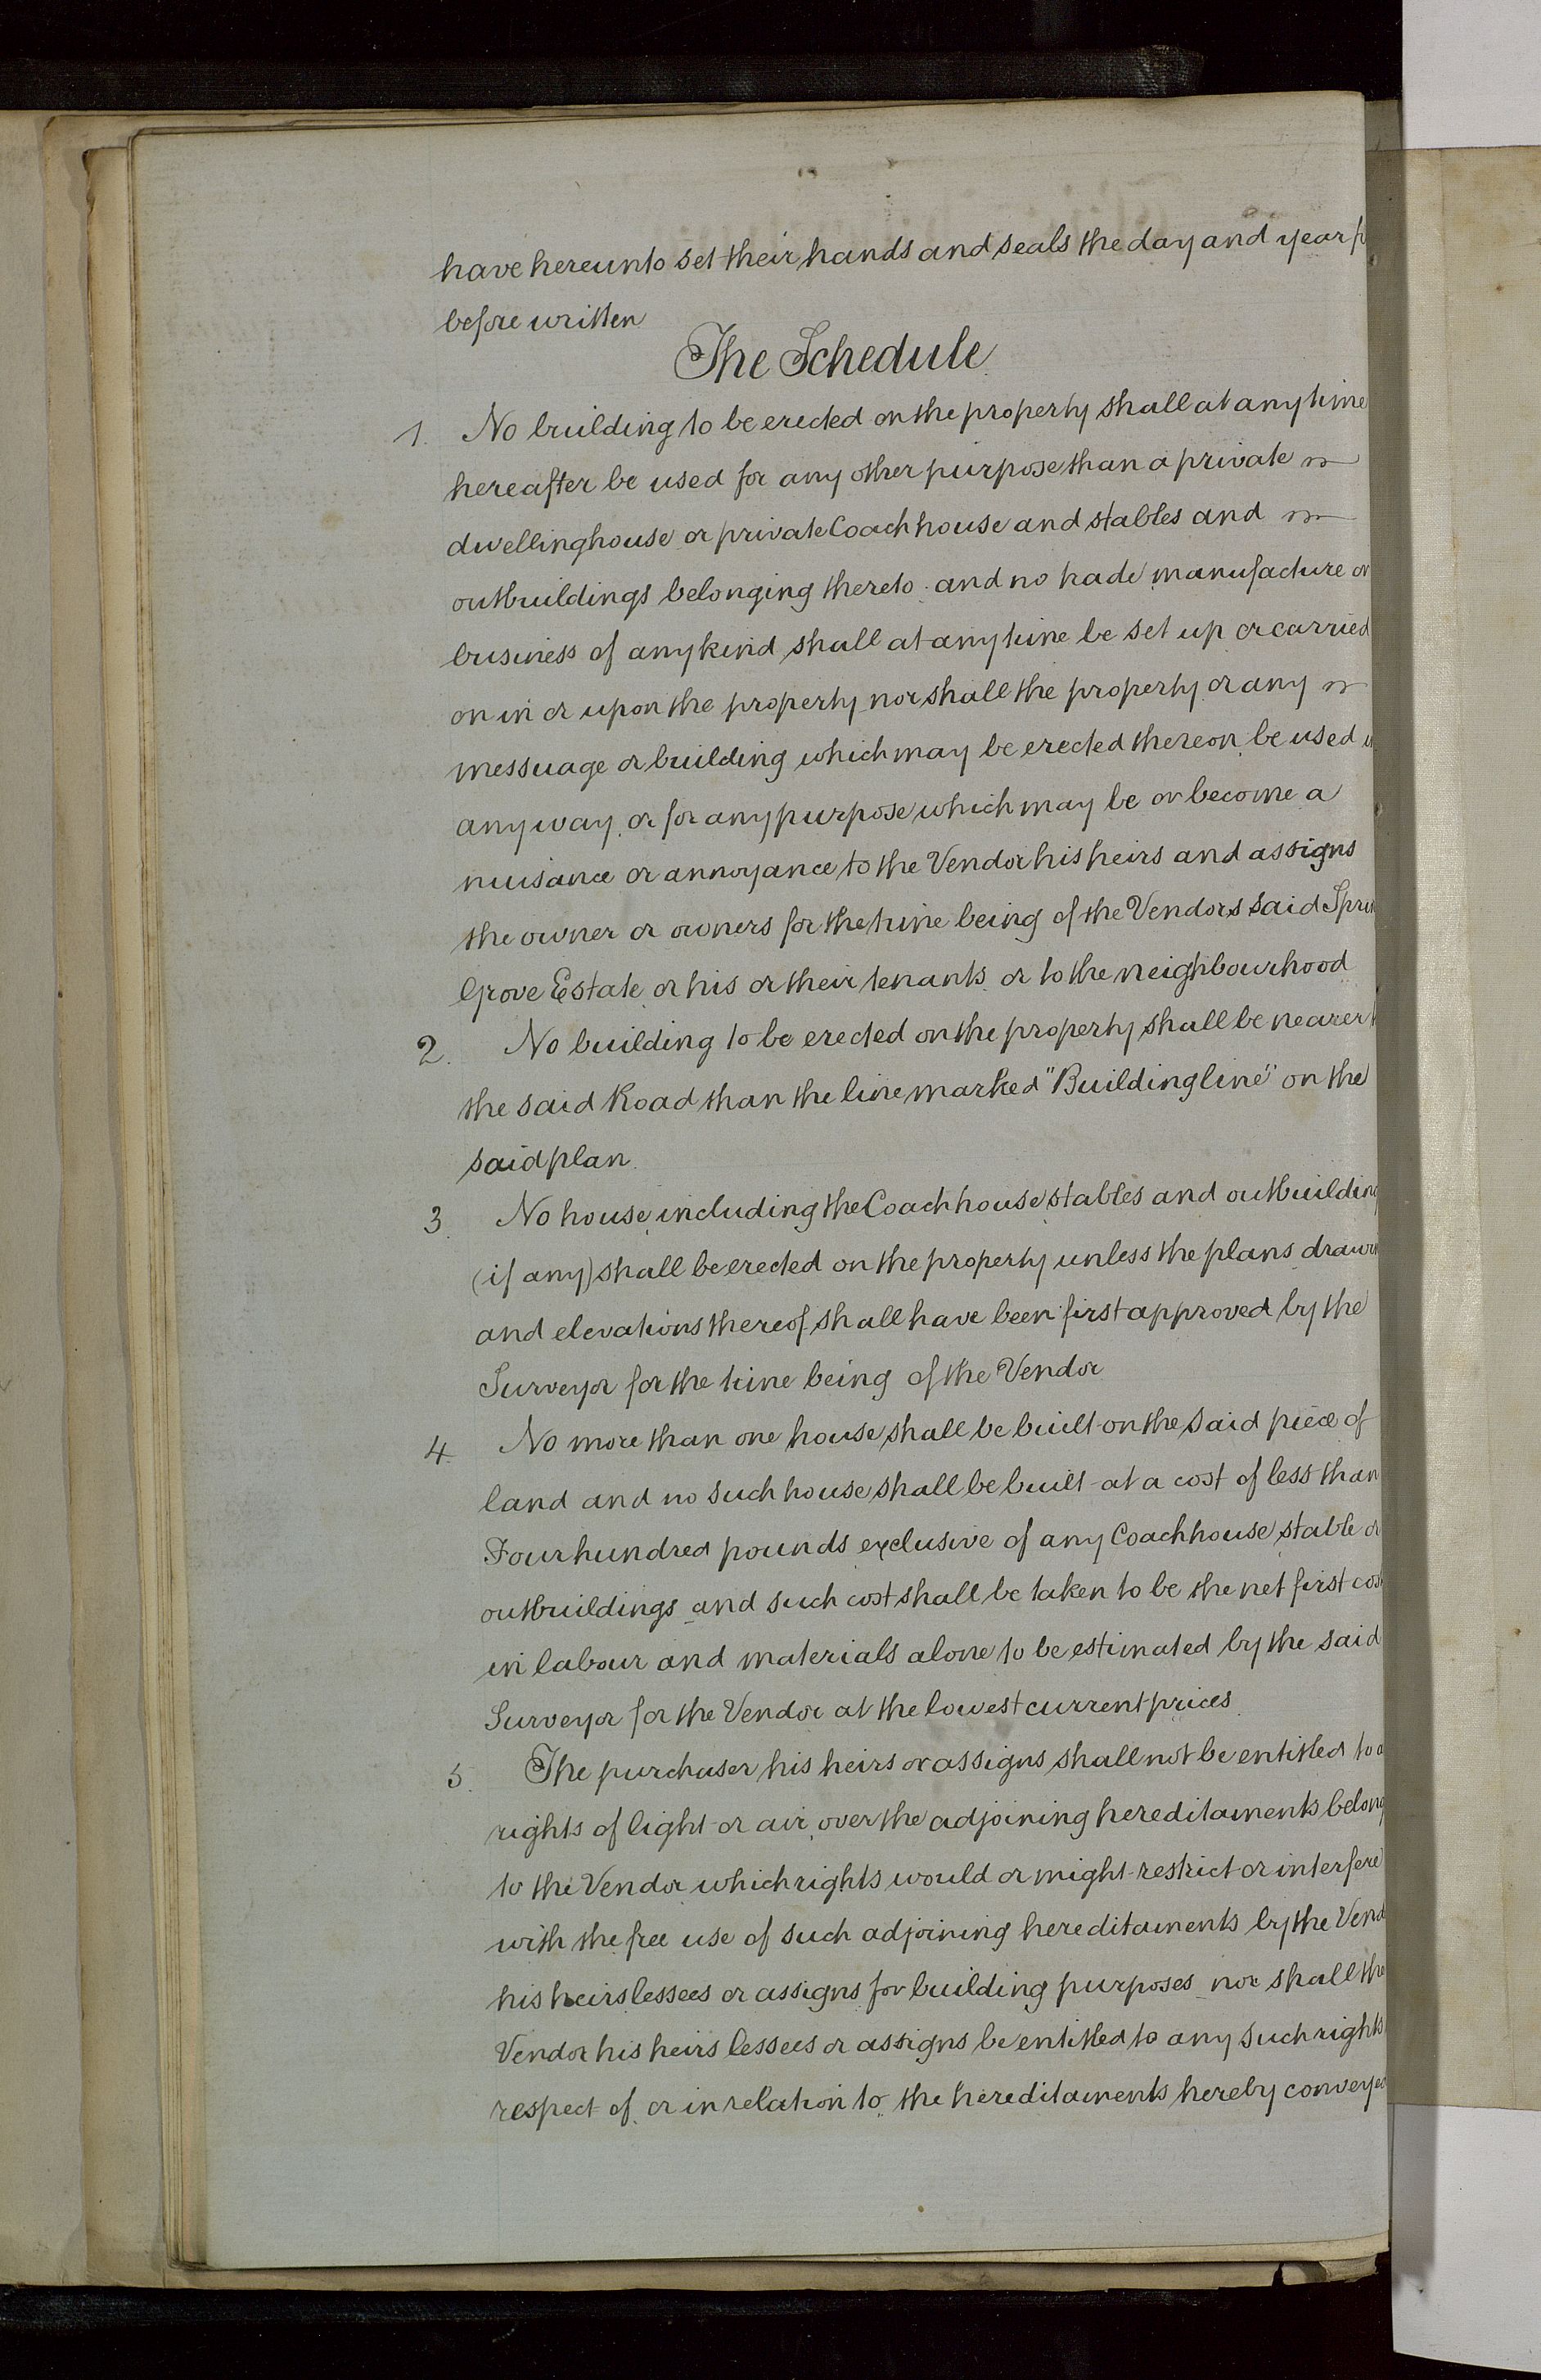 have hereunto set their hands and seals the day and year
before written
The Schedule
1. No building to be erected on the property shall at any time
hereafter be used for any other purpose than a private
dwellinghouse or private Coach house and stables and
outbuildings belonging thereto and no trade manufacture or
business of any kind shall at any time be set up or carried
on in or upon the property nor shall the property or any
messuage or building which may be erected thereon be used
any way or for any purpose which may be or become a
nuisance or annoyance to the Vendor his heirs and assigns
the owner or owners for the time being of the Vendors said
Grove Estate or his or their tenants or to the neighbourhood
2. No building to be erected on the property shall be nearer
the said Road than the line marked "Building line" on the
said plan.
3. No house including the Coach house stables and outbuilding
(if any) shall be erected on the property unless the plans drawn
and elevations thereof shall have been first approved by the
Surveyor for the time being of the Vendor
4. No more than one house shall be built on the said piece of
land and no such house shall be built at a cost of less than
Four hundred pounds exclusive of any Coach house stable or
outbuildings and such cost shall be taken to be the net first cos
in labour and materials alone to be estimated by the said
Surveyor for the Vendor at the lowest current prices.
5. The purchaser his heirs or assigns shall not be entitled to a
rights of light or air over the adjoining hereditaments belong
to the Vendor which rights would or might restrict or interfere
with the free use of such adjoining hereditaments by the Vend
his heirs lessees or assigns for building purposes nor shall the
Vendor his heirs lessees or assigns be entitled to any such rights
respect of or in relation to the hereditaments hereby conveyed